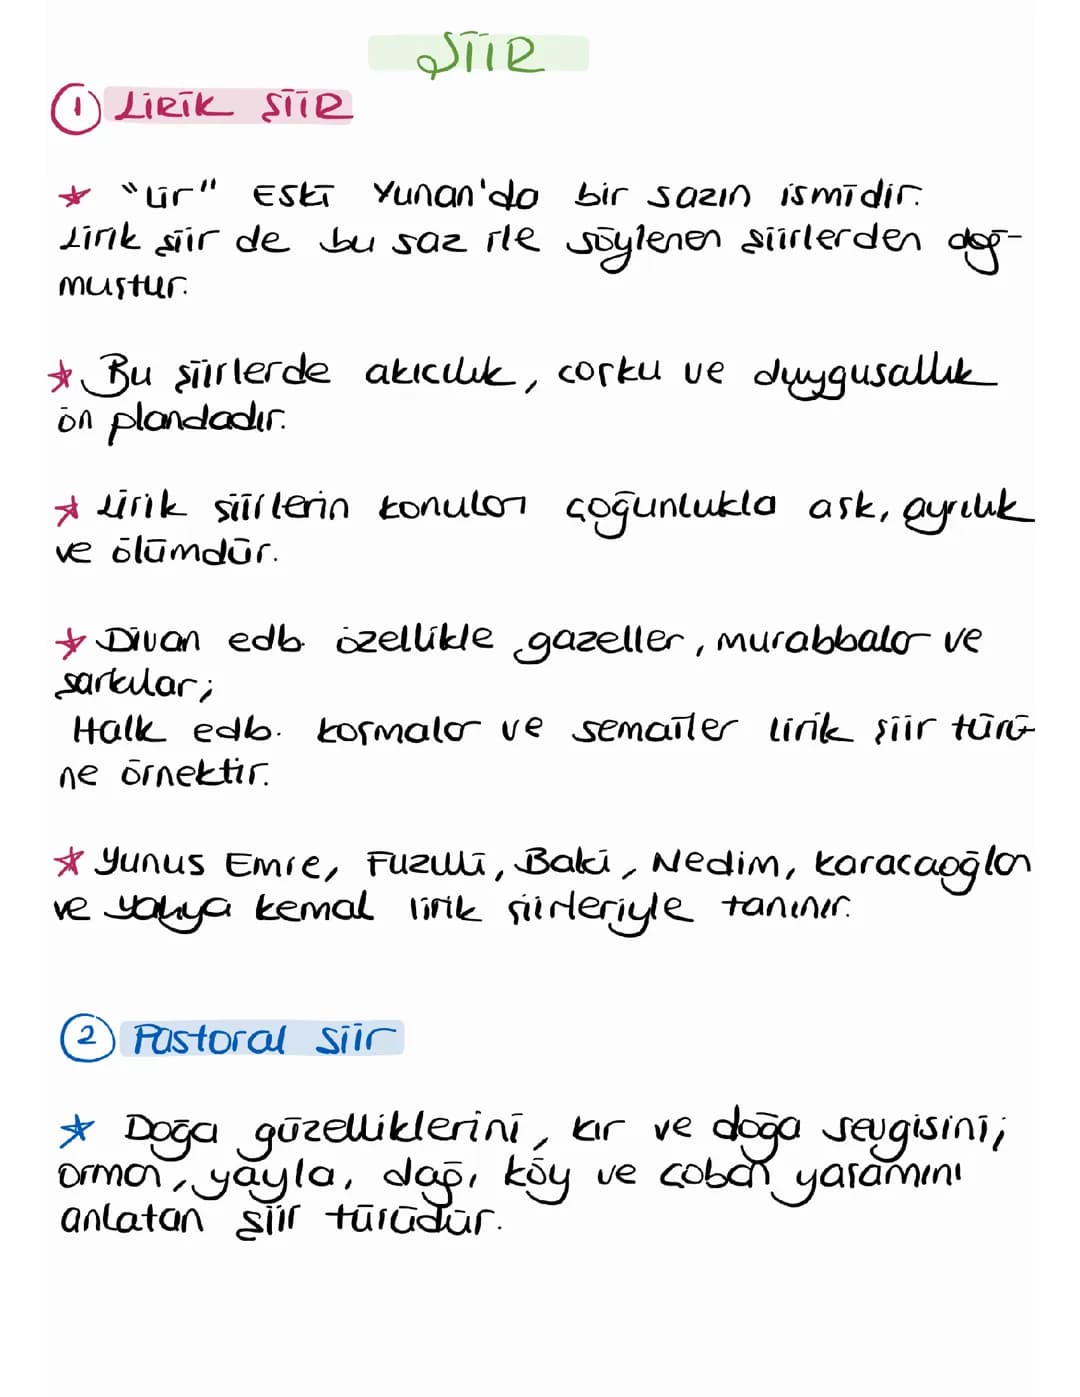 ŞİİR
1 LİRİK ŞİİR
★ "Lir" Eski Yunan'da bir sazın ismidir.
Lirik şiir de bu saz ile söylenen şiirlerden doğ-
muştur.
★ Bu şiirlerde akıcılık, coşku ve duygusallık
ön plandadır.
★ Lirik şiirlerin konuları çoğunlukla aşk, ayrılık
ve ölümdür.
★ Divan edb. özellikle gazeller, murabbalar ve
şarkılar;
Halk edb. koşmalar ve semailer lirik şiir türü-
ne örnektir.
★ Yunus Emre, Fuzuli, Baki, Nedim, Karacaoğlan
ve Yahya Kemal lirik şiirleriyle tanınır.
2 Pastoral şiir
★ Doğa güzelliklerini, kır ve doğa sevgisini;
orman, yayla, dağ, köy ve çoban yaşamını
anlatan şiir türüdür.